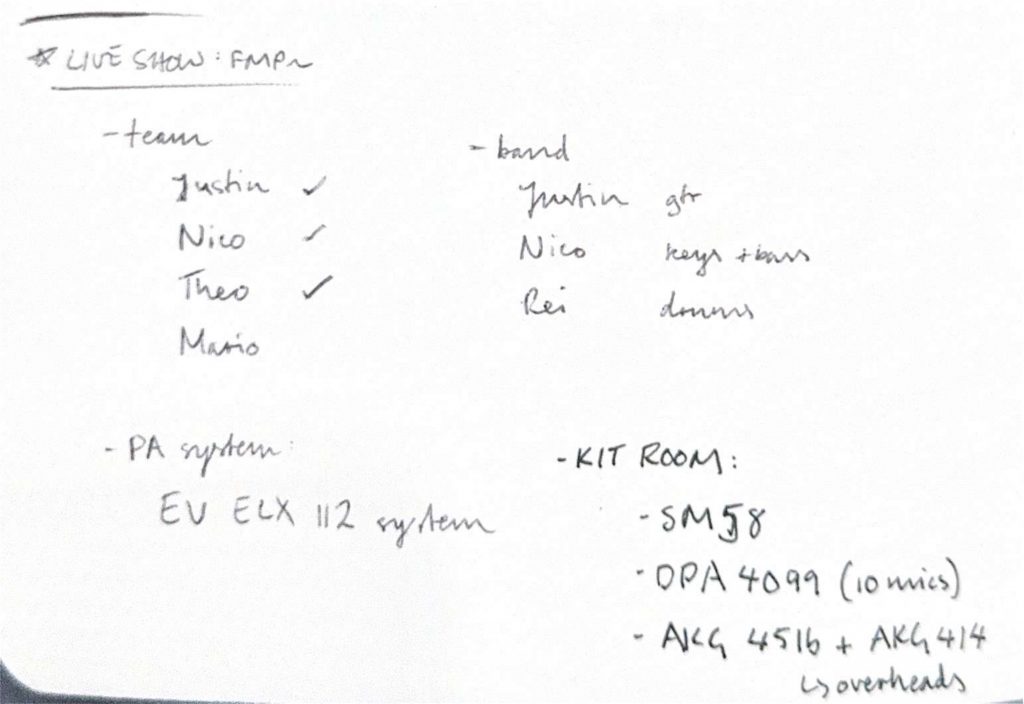 * LIVE SHOW: FMPR
- team
Justin ✓
Nico ✓
Theo ✓
Mario
- band
Justin gtr
Nico keys + bass
Rei drums
- PA system:
EV ELX 112 system
- KIT ROOM:
- SM58
- DPA 4099 (10 mics)
- AKG 451b + AKG 414
↳ overheads